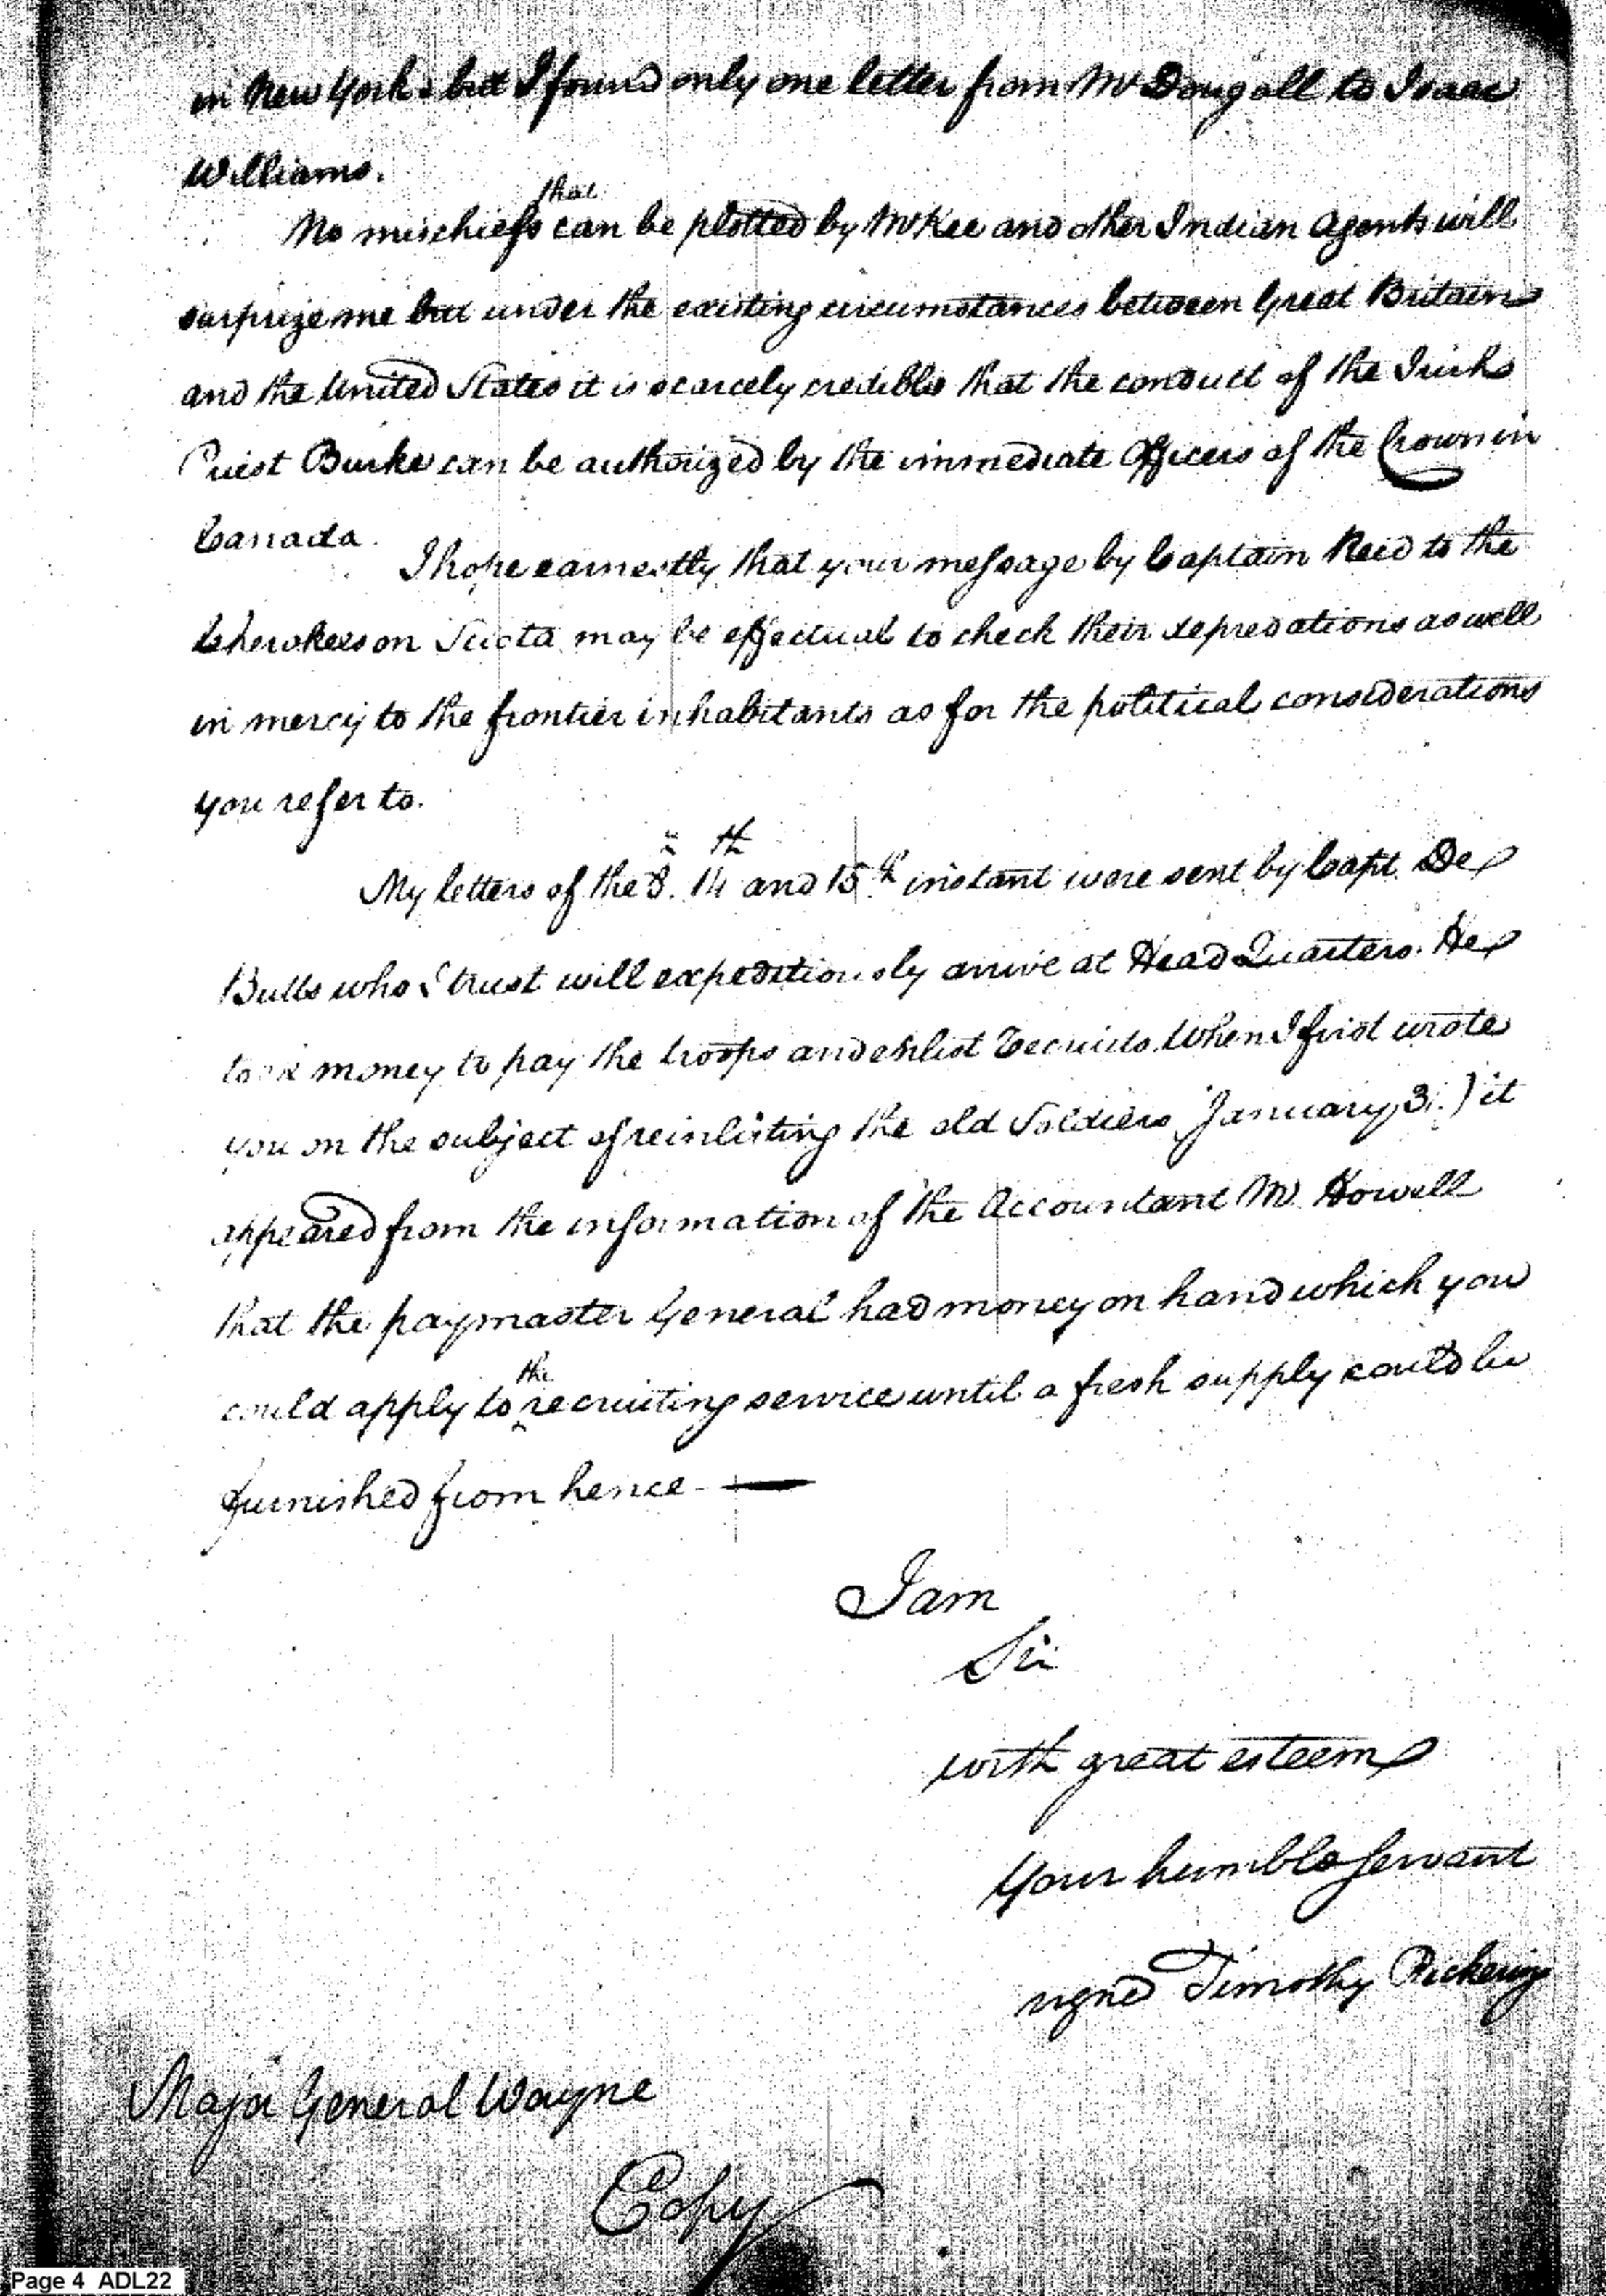 in New York: but I found only one letter from McDougall to Isaac
Williams.
that
No mischiefs can be plotted by McKee and other Indian Agents will
surprize me but under the existing circumstances between Great Britain
and the United States it is scarcely credible that the conduct of the Irish
Priest Burke can be authorized by the immediate Officers of the Crown in
Canada.
I hope earnestly that your message by Captain Reed to the
Cherokees on Sciota may be effectual to check their depredations as well
in mercy to the frontier inhabitants as for the political considerations
you refer to.
My letters of the 8. 14th and 15th instant were sent by Capt. De
Butts who I trust will expeditiously arrive at Head Quarters. He
took money to pay the troops and enlist recruits. When I first wrote
you on the subject of reinlisting the old Soldiers (January 31.) it
appeared from the information of the Accountant Mr. Howell
that the paymaster General had money on hand which you
the
could apply to recruiting service until a fresh supply could be
furnished from hence —
I am
Sir
with great esteem
Your humble Servant
signed Timothy Pickering
Major General Wayne
Copy
Page 4 ADL22